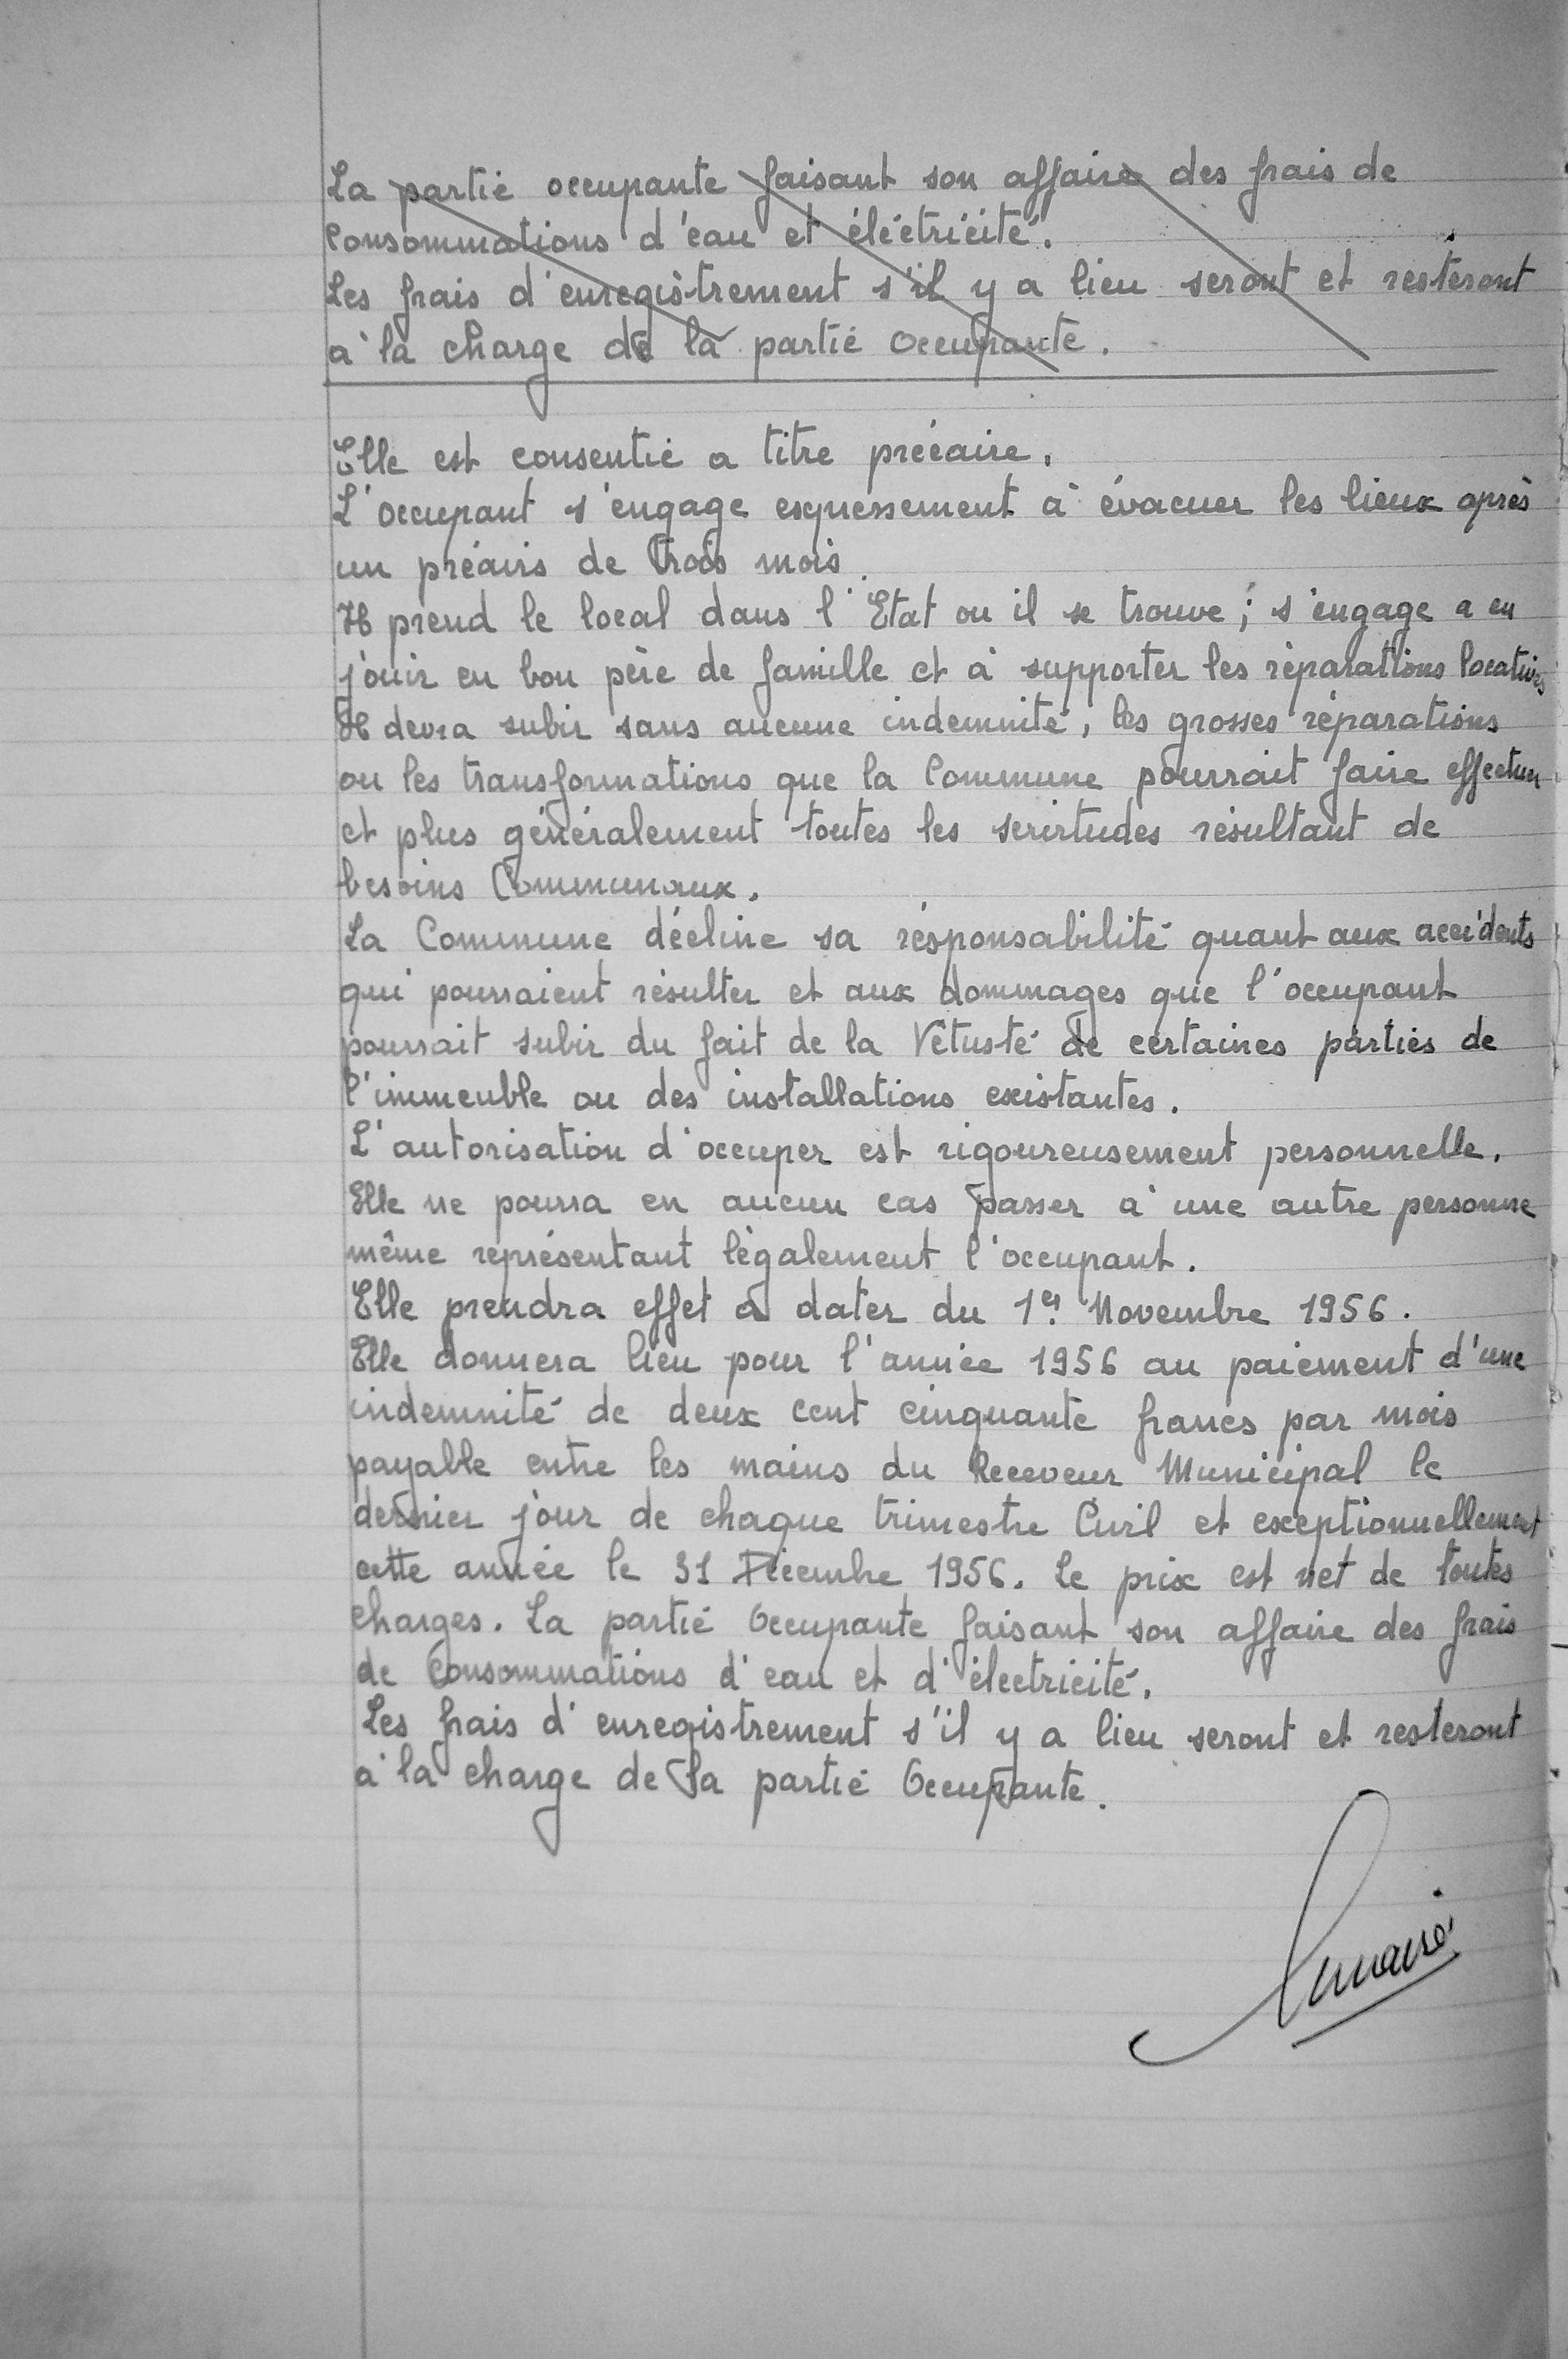 La partie occupante faisant son affaire des frais de
Consommations d'eau et éléctricité.
Les frais d'enregistrement s'il y a lieu seront et resteront
a la charge de la partie occupante.
Elle est consentie a titre précaire.
L'occupant s'engage expressement à évacuer les lieux après
un préavis de trois mois.
Il prend le local dans l'Etat ou il se trouve ; s'engage a en
jouir en bon père de famille et à supporter les réparations locatives
Il devra subir sans aucune indemnité, les grosses réparations
ou les transformations que la Commune pourrait faire effectuer
et plus généralement toutes les servitudes résultant de
besoins Communaux.
La Commune décline sa résponsabilité quant aux accidents
qui pourraient résulter et aux dommages que l'occupant
pourrait subir du fait de la Vétusté de certaines parties de
l'immeuble ou des installations existantes.
L'autorisation d'occuper est rigoureusement personnelle.
Elle ne pourra en aucun cas passer à une autre personne
même représentant légalement l'occupant.
Elle prendra effet à dater du 1er Novembre 1956.
Elle donnera lieu pour l'année 1956 au paiement d'une
indemnité de deux cent cinquante francs par mois
payable entre les mains du Receveur Municipal le
dernier jour de chaque trimestre Civil et exceptionnellement
cette année le 31 Décembre 1956. Le prix est net de toutes
charges. La partie Occupante faisant son affaire des frais
de Consommations d'eau et d'électricité.
Les frais d'enregistrement s'il y a lieu seront et resteront
à la charge de la partie Occupante.